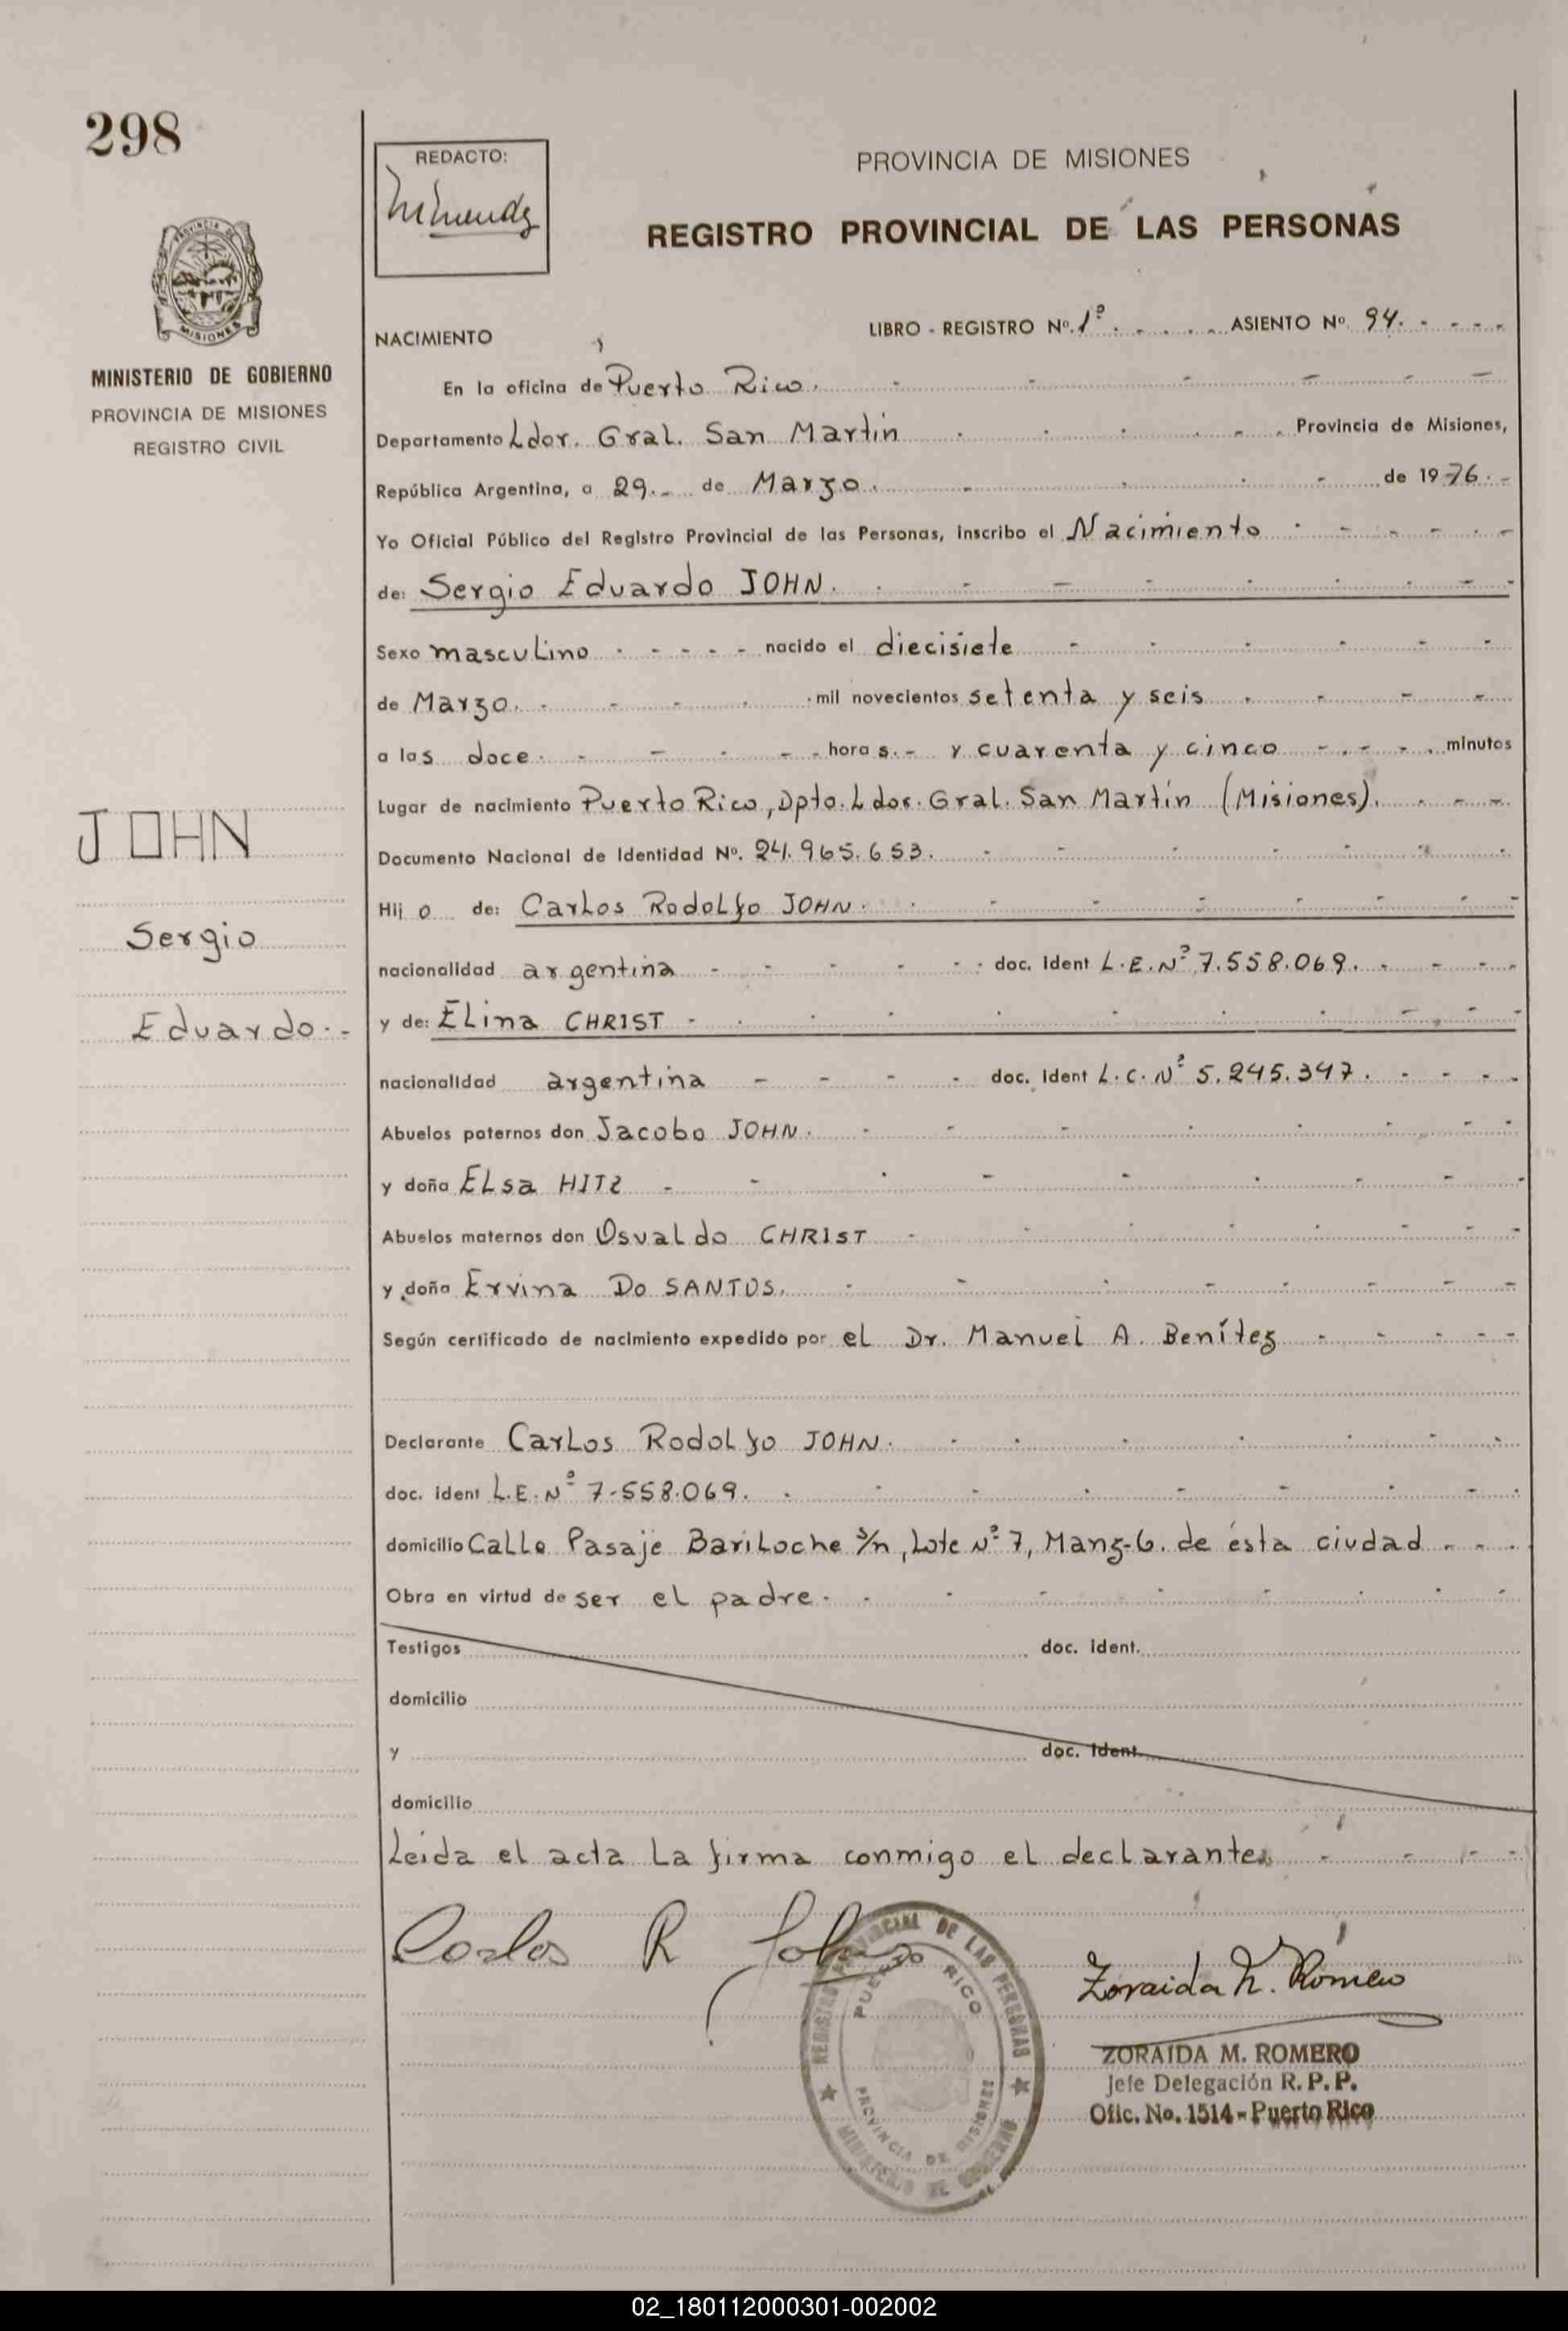 298
REDACTO:
PROVINCIA DE MISIONES
REGISTRO PROVINCIAL DE LAS PERSONAS
MISIONES
MINISTERIO DE GOBIERNO
PROVINCIA DE MISIONES
REGISTRO CIVIL
NACIMIENTO
LIBRO - REGISTRO Nº. 1º ASIENTO Nº 94.
En la oficina de Puerto Rico.
Departamento Ldor. Gral. San Martín Provincia de Misiones,
República Argentina, a 29.- de Marzo. de 1976.-
Yo Oficial Público del Registro Provincial de las Personas, inscribo el Nacimiento
de: Sergio Eduardo JOHN.
Sexo masculino nacido el diecisiete
de Marzo. mil novecientos setenta y seis
a las doce hora s.- y cuarenta y cinco minutos
Lugar de nacimiento Puerto Rico, Dpto. Ldor. Gral. San Martín (Misiones).
Documento Nacional de Identidad Nº. 24.965.653.
Hij o de: Carlos Rodolfo JOHN.
nacionalidad argentina doc. ident L.E.Nº 7.558.069.
y de: Elina CHRIST
nacionalidad argentina doc. ident L.C.Nº 5.245.347.
Abuelos paternos don Jacobo JOHN.
y doña Elsa HITZ
Abuelos maternos don Osvaldo CHRIST
y doña Ervina Do SANTOS.
Según certificado de nacimiento expedido por el Dr. Manuel A. Benítez
Declarante Carlos Rodolfo JOHN.
doc. ident L.E.Nº 7-558.069.
domicilio Calle Pasaje Bariloche s/n, Lote Nº 7, Manz-6. de ésta ciudad
Obra en virtud de ser el padre.
Testigos doc. ident.
domicilio
y doc. ident.
domicilio
Leída el acta la firma conmigo el declarante.
JOHN
Sergio
Eduardo.-
Carlos R John
Zoraida M. Romero
REGISTRO PROVINCIAL DE LAS PERSONAS
PUERTO RICO
PROVINCIA DE MISIONES
MINISTERIO DE GOBIERNO
ZORAIDA M. ROMERO
Jefe Delegación R.P.P.
Ofic. No. 1514 - Puerto Rico
02_180112000301-002002